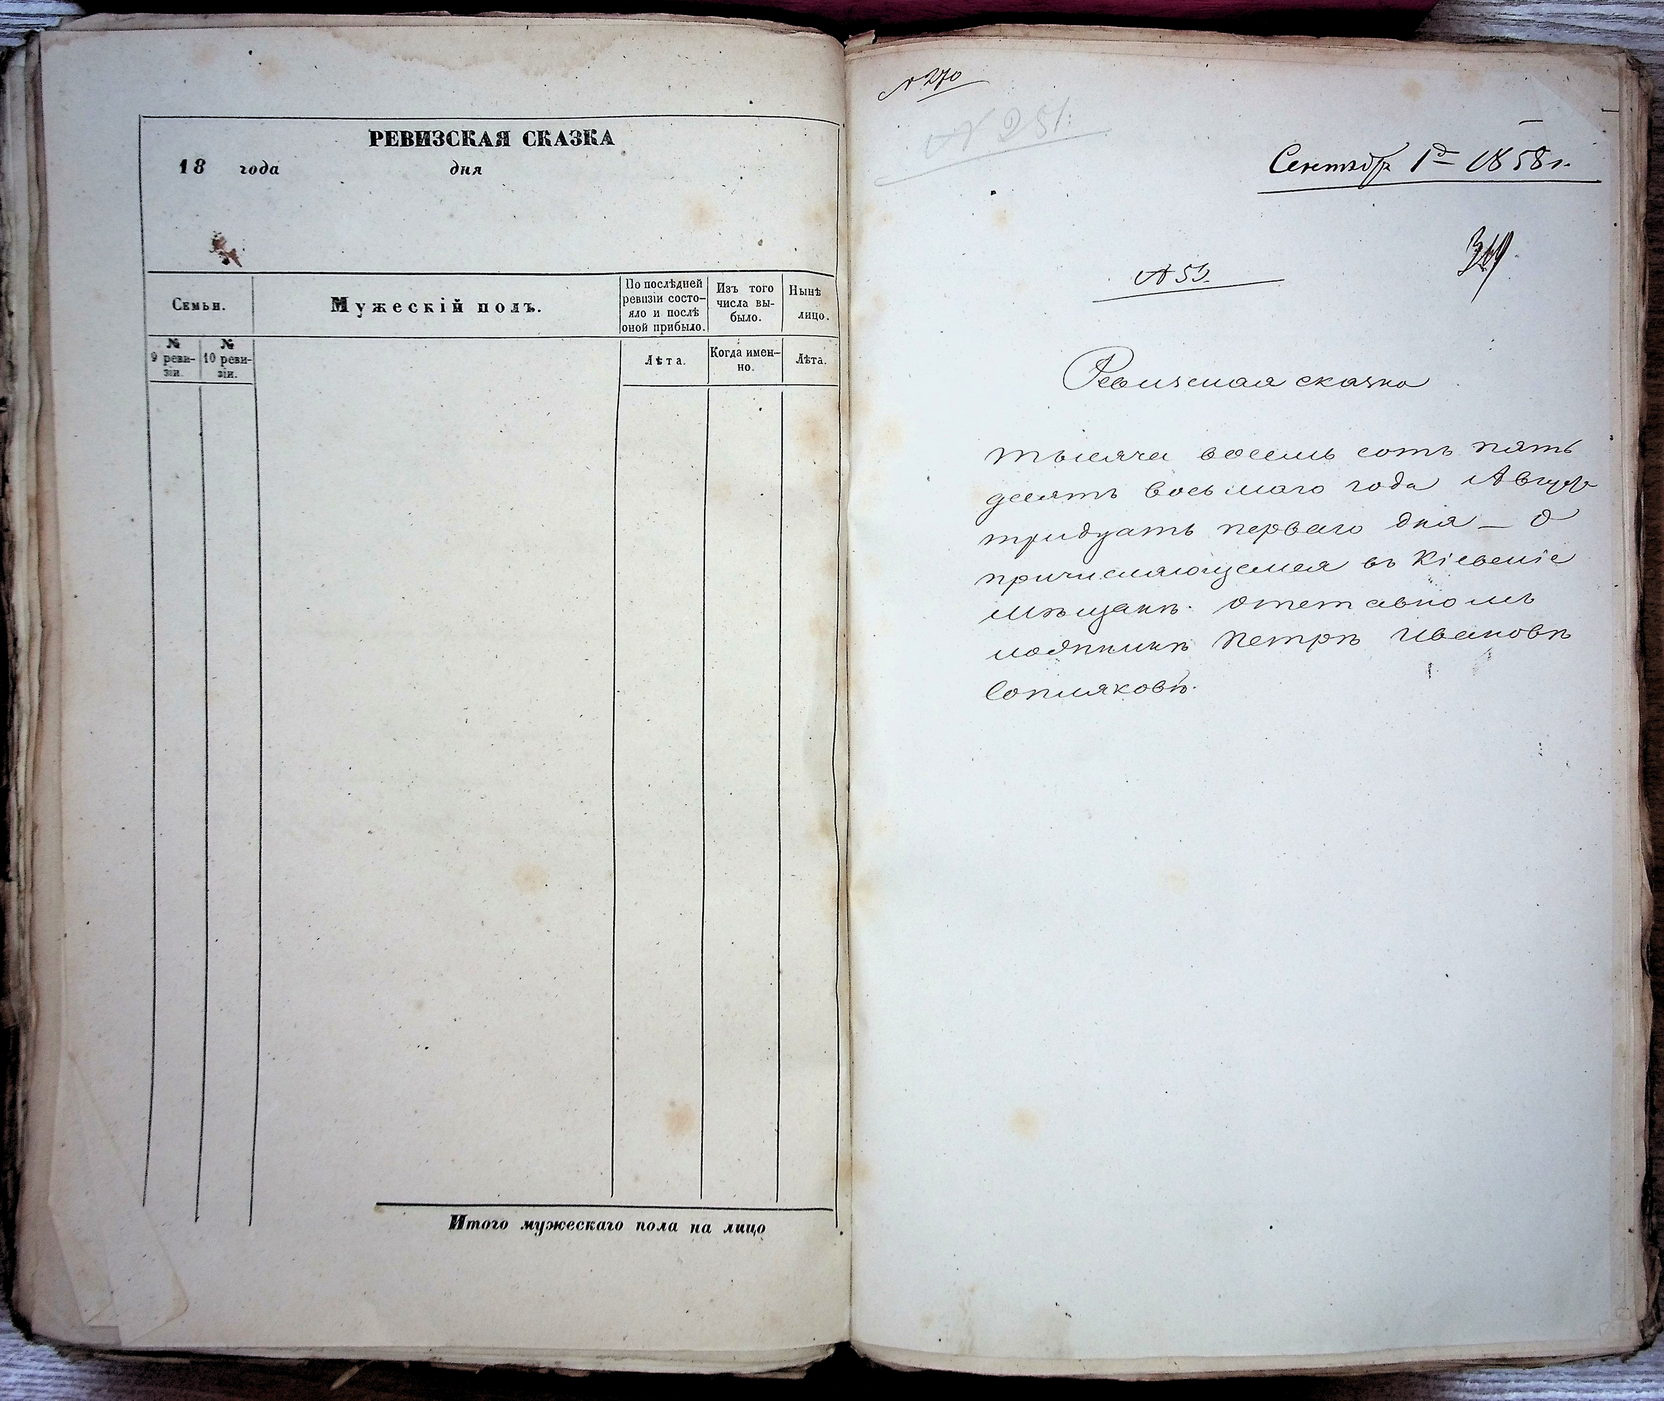 РЕВИЗСКАЯ СКАЗКА
18 года дня
Семьи.
Мужескій полъ.
По послѣдней
ревизіи состо-
яло и послѣ
оной прибыло.
Изъ того
числа вы-
было.
Нынѣ
лицо.
№
9 реви-
зіи.
№
10 реви-
зіи.
Лѣта.
Когда имен-
но.
Лѣта.
Итого мужескаго пола на лицо
№ 270
№ 251.
Сентябр 1го 1858 г.
№ 53.
Ревизская сказка
тысяча восемь сотъ пять
десятъ восьмаго года Август
тридцать перваго дня — о
причисляющемся въ Кіевскіе
мѣщанѣ отставномъ
Петрѣ Ивановѣ
Сопляковѣ.